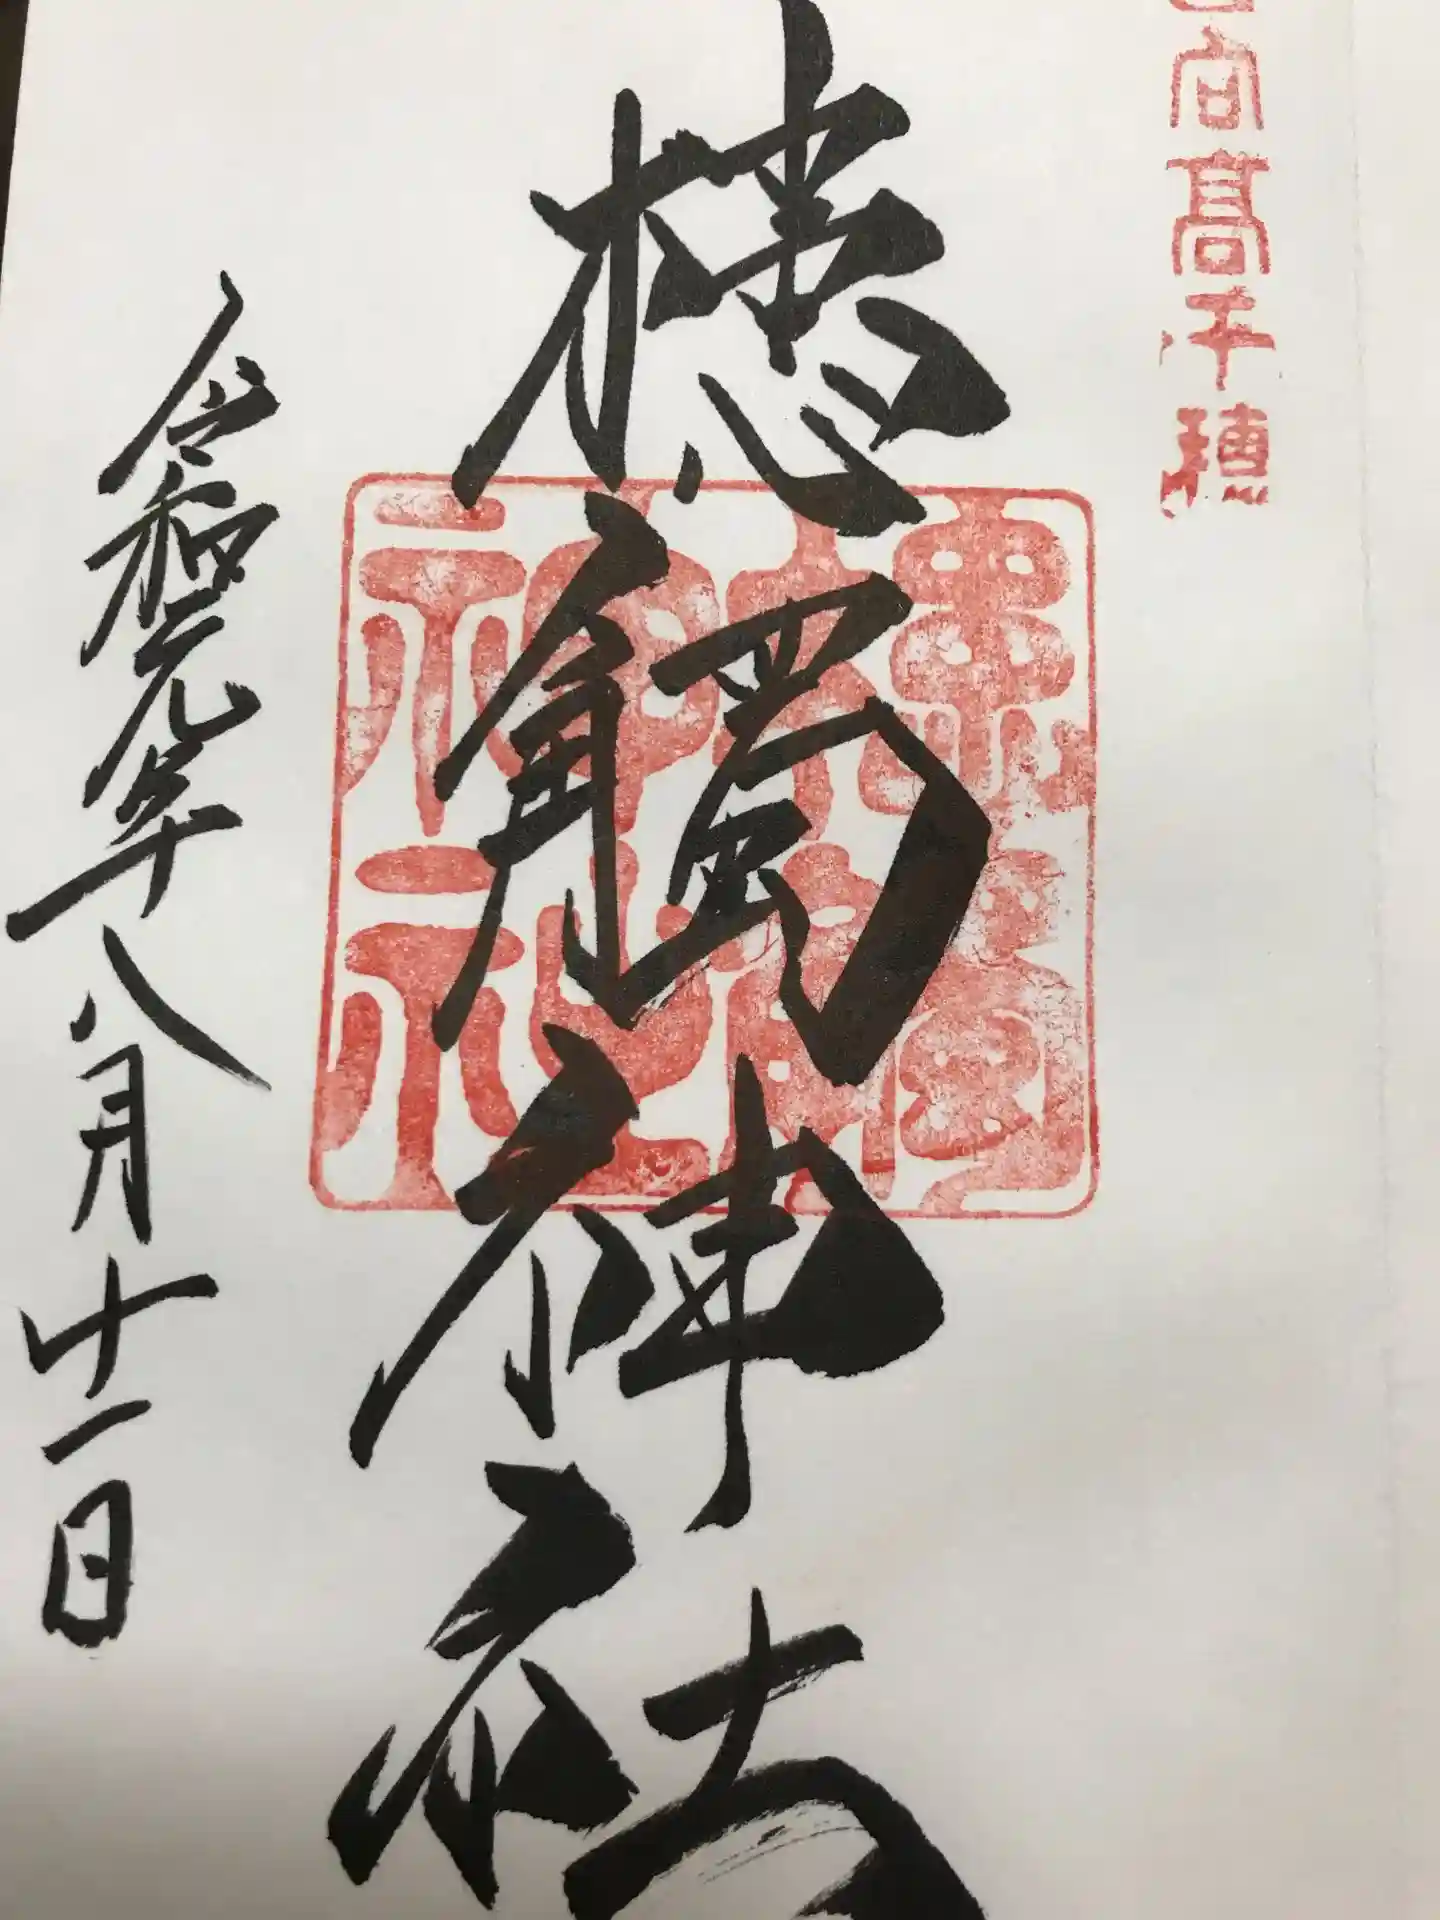 向髙千穂
槵觸神社
槵觸神社
令和元年八月十一日